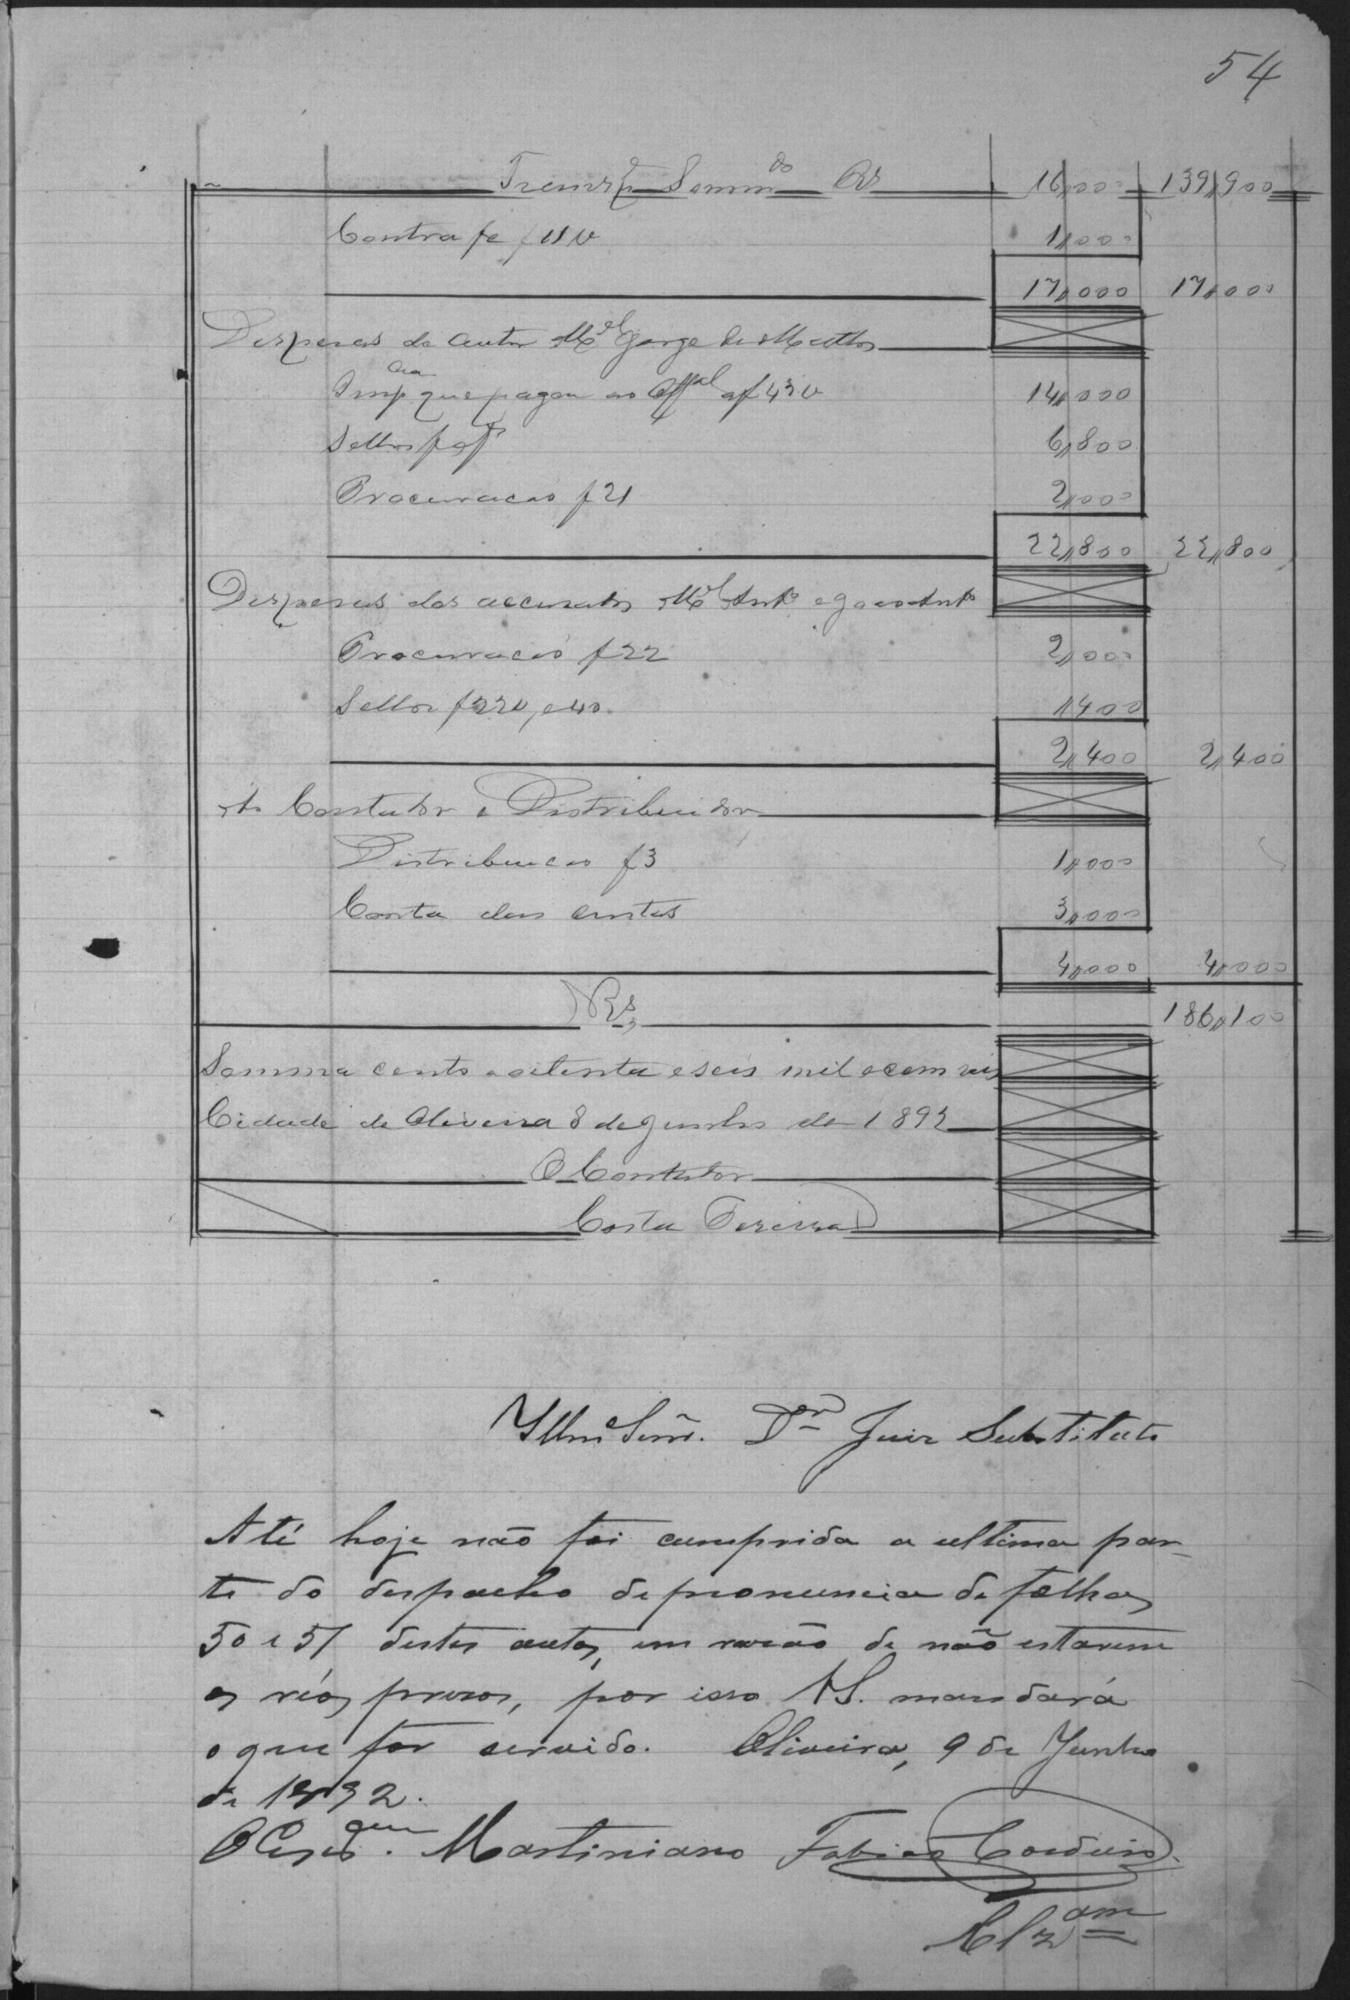 54
Somm do Rs 16,000 139,900
Contra fe f 11 v 1,000
17,000 17,000
Despesas do autor Mel Jorge de Mattos
Impcia que pagou ao Offal af 43 v 14,000
Sellos f 6,800
Procuracao f 21 2,000
22,800 22,800
Despesas dos accusados Mel Anto e Joao Anto
Procuracao f 22 2,000
Sellos f 22 v, e 40. 400
2,400 2,400
Ao Contador e Distribuidor
Distribuicao f 3 1,000
Conta das custas 3,000
4,000 4,000
Rs, 186,100
Somma cento e oitenta e seis mil e cem reis
Cidade de Oliveira 8 de Junho de 1892
O Contador
Costa Pereira
Illmo Senr. Dor Juiz Substituto
Até hoje não foi cumprida a ultima par-
te do despacho de pronuncia de folhas
50 e 51 destes autos, em razão de não estarem
os réos presos, por isso VS. mandará
o que for servido. Oliveira, 9 de Junho
de 1892.
O Escram. Martiniano Fabiao Cordeiro.
Clzam